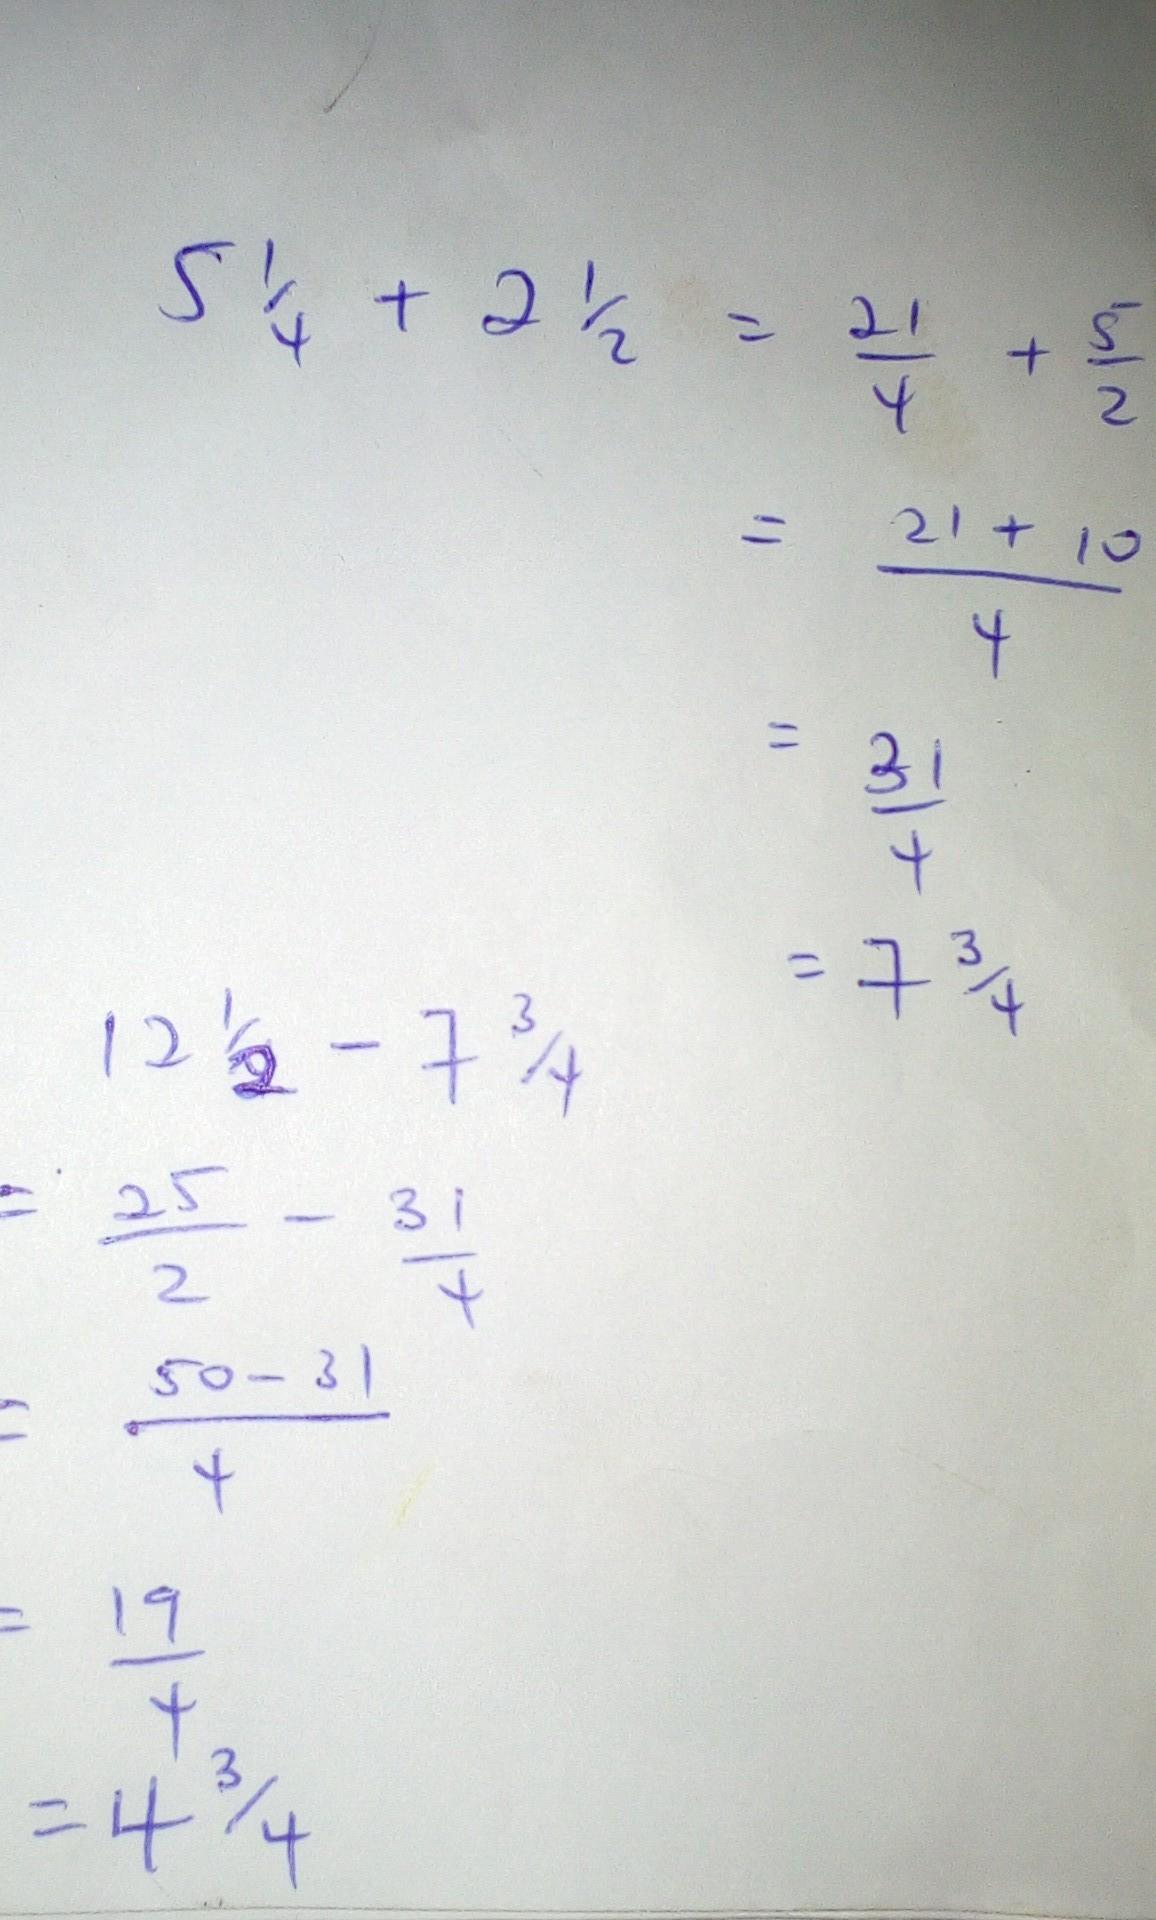 5 1/4 + 2 1/2 = 21/4 + 5/2
= 21 + 10/4
= 31/4
= 7 3/4
12 1/2 - 7 3/4
= 25/2 - 31/4
= 50 - 31/4
= 19/4
= 4 3/4